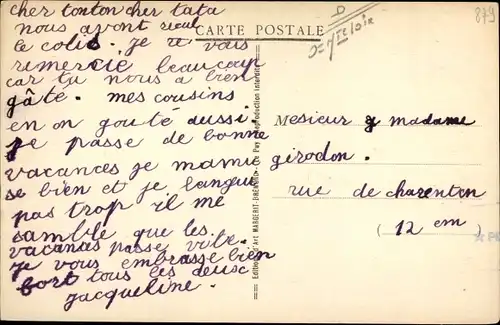 cher tonton cher tata
nous avont recul
le colis. je te vais
remercie beaucoup
car tu nous a bien
gâté. mes cousins
en on gouté aussi.
je passe de bonne
vacances je mamu
se bien et je langui
pas trop il me
samble que les
vacances passe vite.
je vous embrasse bien
fort tous les deusc
jacqueline.
CARTE POSTALE
D
Hte loire
879
Editions d'Art MARGERIT-BREMOND - Le Puy Reproduction Interdite
Mesieur g madame
girodon.
rue de charenton
(12 em)